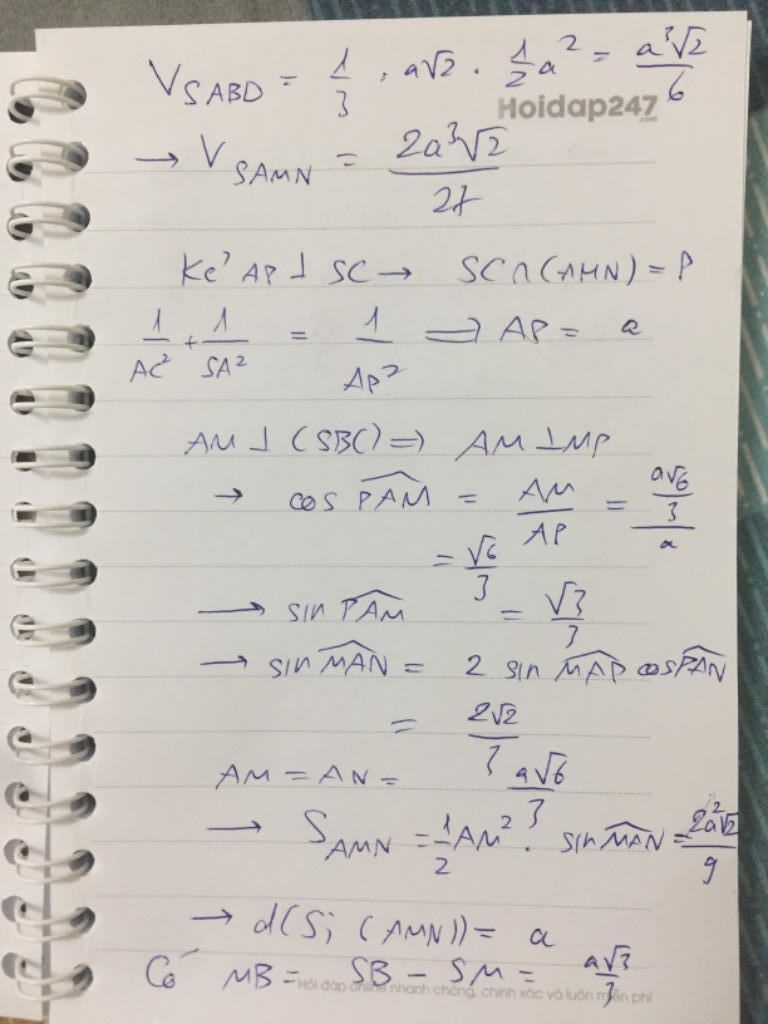 V_SABD = 1/3 . a√2 . 1/2 a² = a³√2/6
Hoidap247
.com
→ V_SAMN = 2a³√2/27
Kẻ AP ⊥ SC → SC ∩ (AMN) = P
1/AC² + 1/SA² = 1/AP² ⟹ AP = a
AM ⊥ (SBC) ⟹ AM ⊥ MP
→ cos PAM = AM/AP = (a√6/3)/a
= √6/3
→ sin PAM = √3/3
→ sin MAN = 2 sin MAP cos PAN
= 2√2/3
AM = AN = a√6/3
→ S_AMN = 1/2 AM² . sin MAN = 2a²√2/9
→ d(S; (AMN)) = a
Có MB = SB - SM = a√3/3
Hỏi đáp online nhanh chóng, chính xác và luôn miễn phí